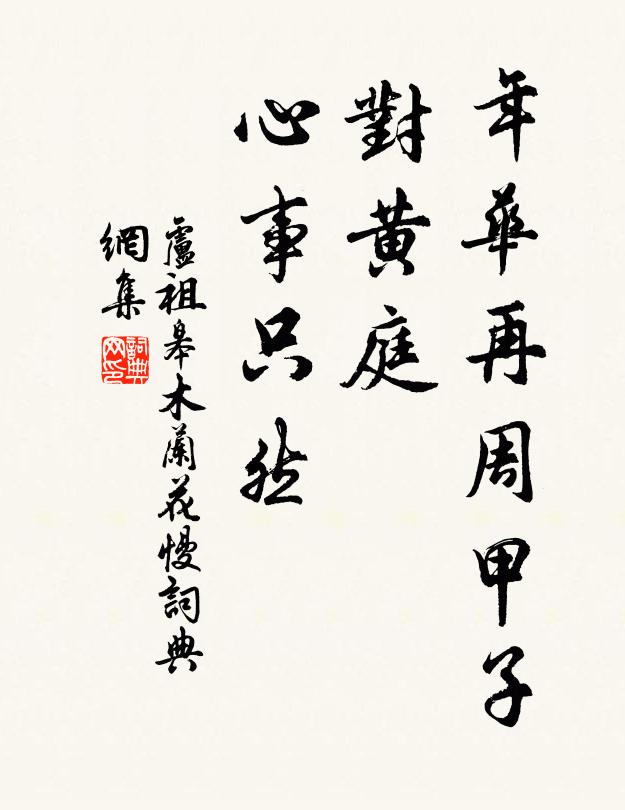 年華再周甲子
對黃庭
心事只然
盧祖皋木蘭花慢詞典
網集
詞典網印